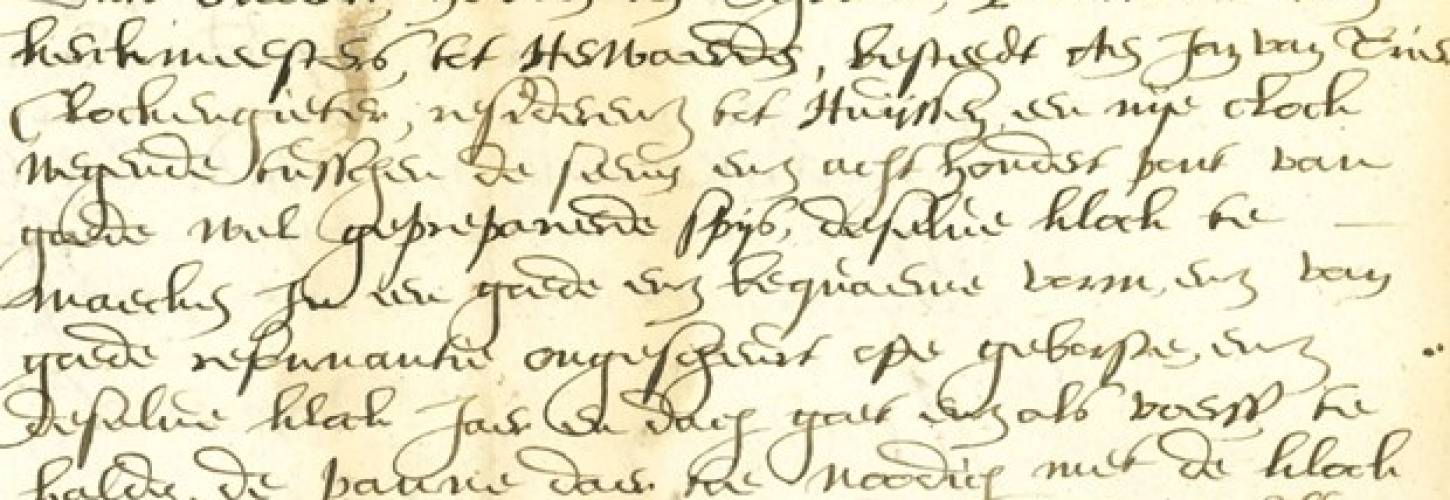 kerckmeesters, tot Herwaerden, besteedt aen Jan van Trier
Clockengieter, residerenn tot Huijssen een nije clock
wegende tusschen de seven enn acht hondert pont van
goede wel geprepareerde spijs, deselve klock te
maecken In een goede enn bequaeme vorm, enn van
goede resonnantie ongescheurt ofte geborste, enn
deselve klock Jaer en dach goet enn als voerss te
halden, de panne daer toe noodich met de klock